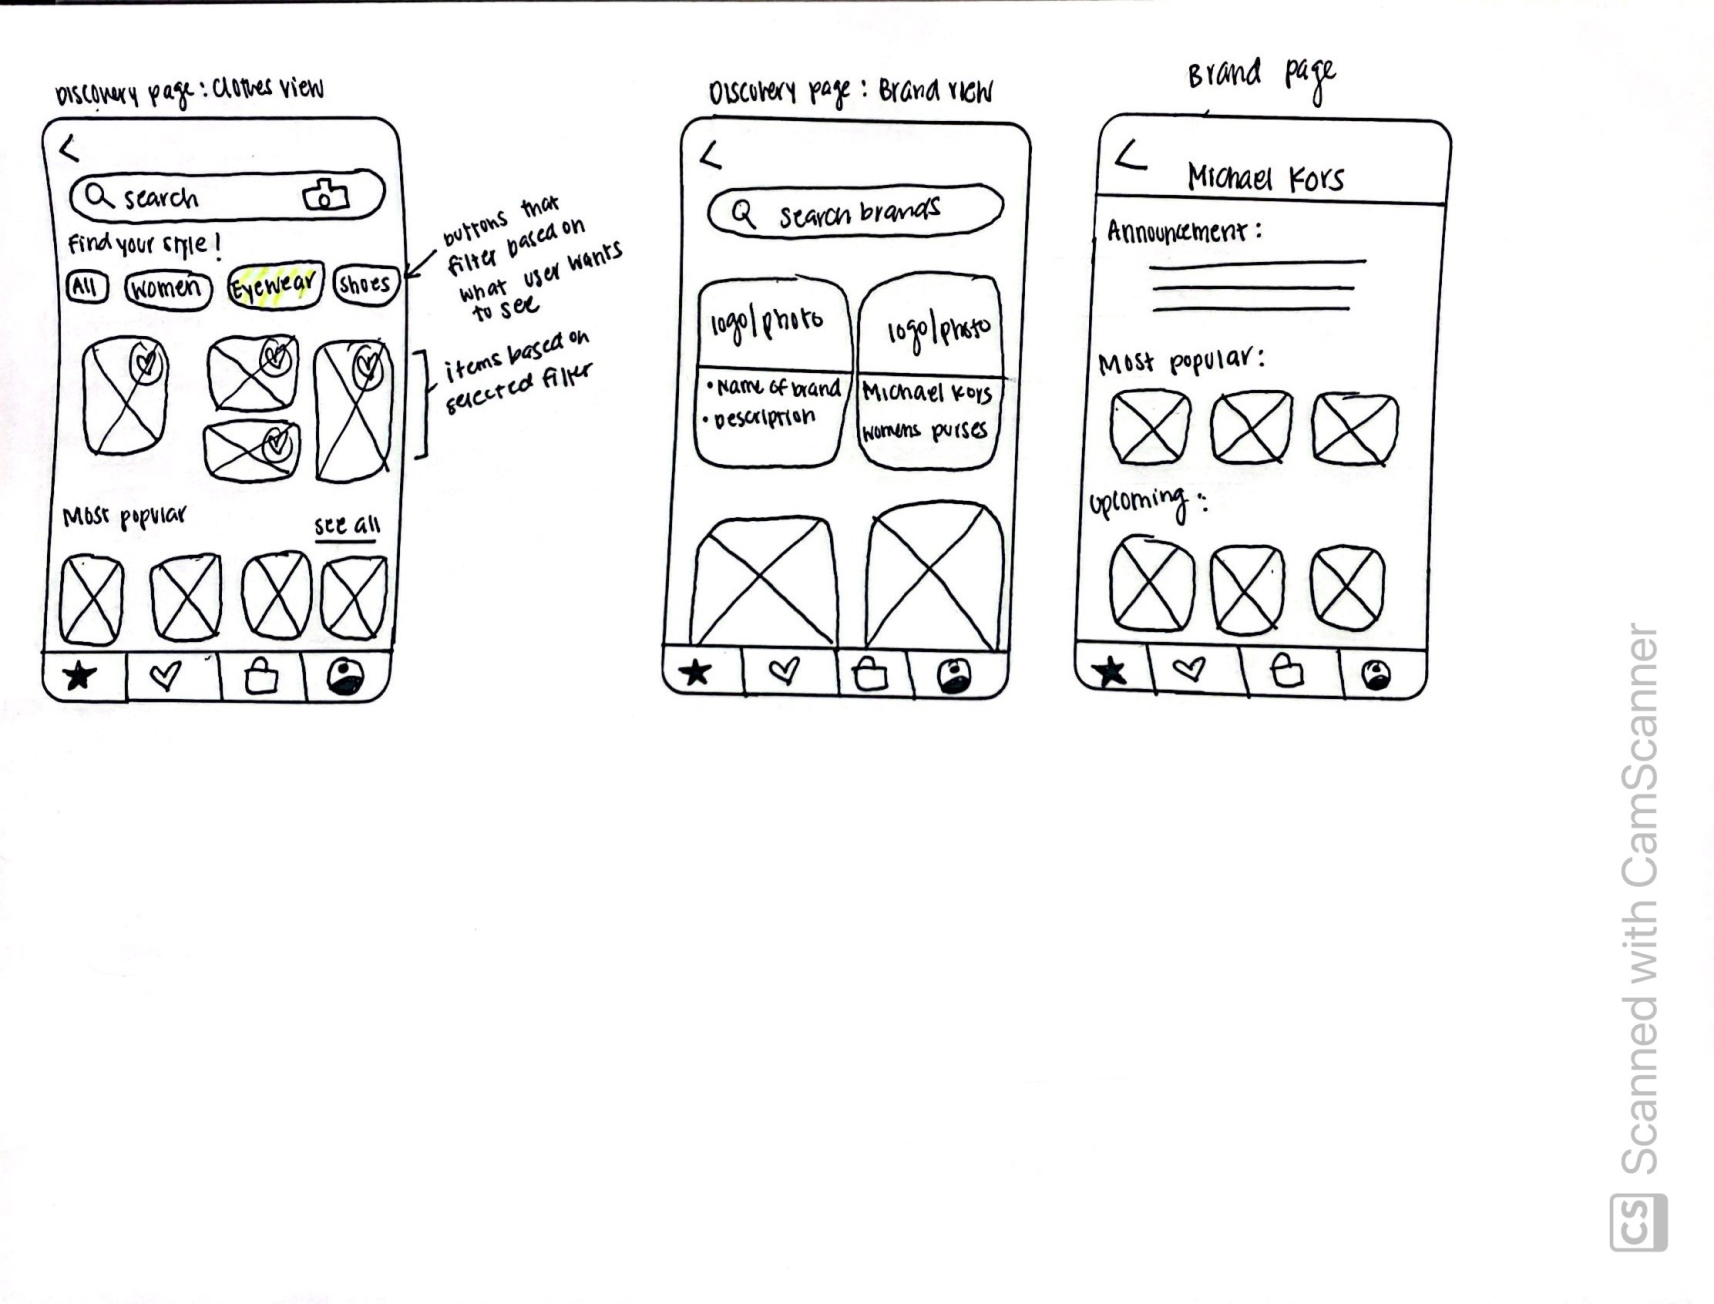 Discovery page : Clothes view
search
Find your style !
All
Women
Eyewear
Shoes
buttons that
filter based on
what user wants
to see
items based on
selected filter
Most popular
see all
Discovery page : Brand view
search brands
logo/photo
• Name of brand
• Description
logo/photo
Michael Kors
womens purses
Brand page
Michael Kors
Announcement :
Most popular :
Upcoming :
CS Scanned with CamScanner